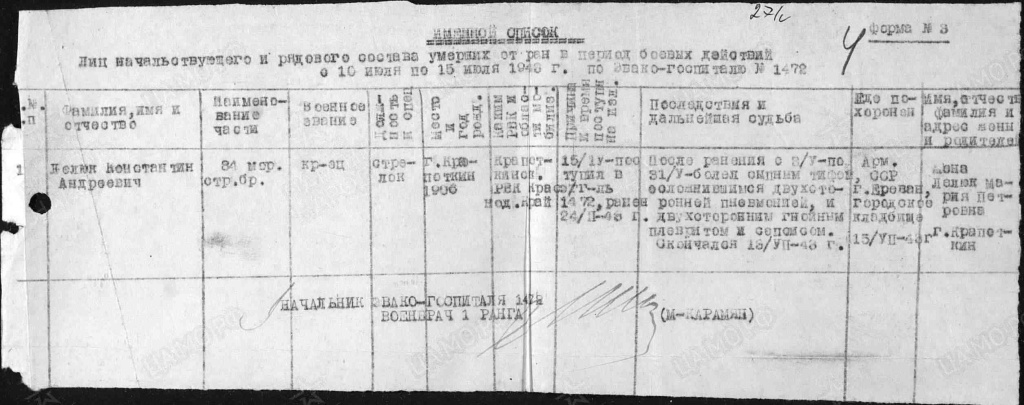 271с
4
Форма № 3
ИМЕННОЙ СПИСОК
Лиц начальствующего и рядового состава умерших от ран в период боевых действий
с 10 июля по 15 июля 1943 г. по Эвако-госпиталю № 1472
№ п
Фамилия, имя и отчество
Наимено-вание части
Военное звание
Место и год рожд.
Последствия и дальнейшая судьба
Где по-хоронен
Имя, отчеств фамилия и адрес жены и родителей
1
Константин Андреевич
84 мор. стр.бр.
кр-ец
стре-лок
г. Кра-поткин 1906
Крапот-кинск. РВК Крас-нод. край
15/IУ-пос тупил в э/г-ль 1472, ранен 24/П-43 г.
После ранения с 2/У-по 31/У-болел сыпным тифом, осложнившимся двухсто-ронней пневмонией, и двухсторонним гнойным плевритом и сепсисом. Скончался 13/УП-43 г.
Арм. ССР г. Ереван, Городское кладбище 15/УП-43г
Жена Ма-рия Пет-ровна г. Крапот-кин
НАЧАЛЬНИК ЭВАКО-ГОСПИТАЛЯ 1472
ВОЕНВРАЧ 1 РАНГА
(М-КАРАМЯН)
ЦАМО РФ